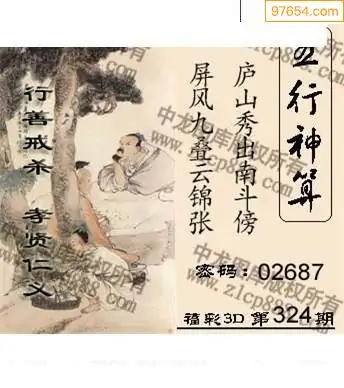 97654.com
五行神算
庐山秀出南斗傍
屏风九叠云锦张
行善戒杀 孝贤仁义
密码：02687
福彩3D 第324期
中龙图库版权所有
www.z1cp888.com